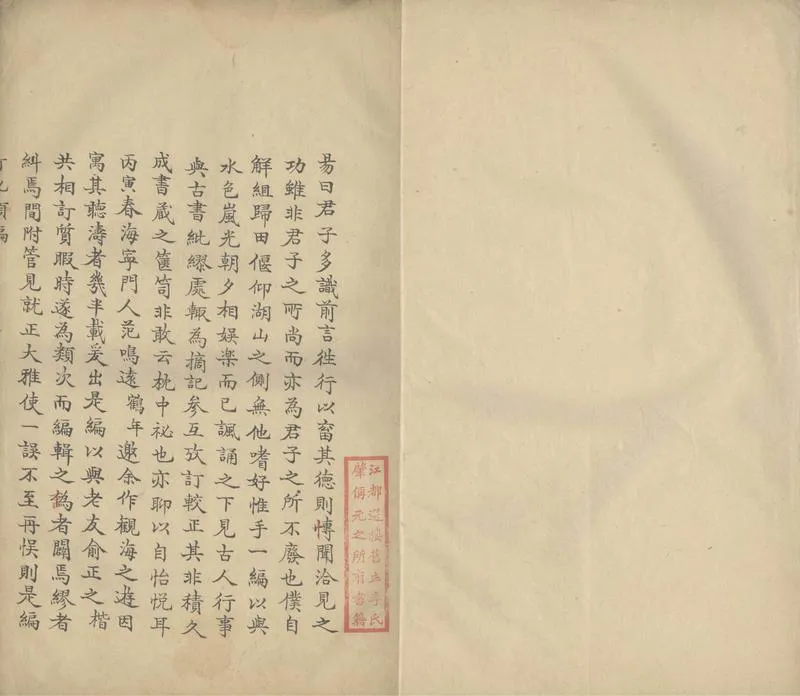 昜曰君子多識前言徃行以畜其德則愽聞洽見之
功雖非君子之所尚而亦為君子之所不廢也僕自
解組歸田偃仰湖山之側無他嗜好惟手一編以與
水色嵐光朝夕相娛楽而已諷誦之下見古人行事
與古書紕繆處輙為摘記參互攷訂較正其非積久
成書蔵之篋笥非敢云枕中祕也亦聊以自怡悅耳
丙寅春海寧門人范鳴遠鶴年邀余作觀海之遊因
寓其聽濤者幾半載爰出是編以與老友俞正之楷
共相訂質暇時遂為類次而編輯之譌者闢焉繆者
糾焉間附管見就正大雅使一誤不至再悮則是編
江都
氏
肇偁元之所有書籍